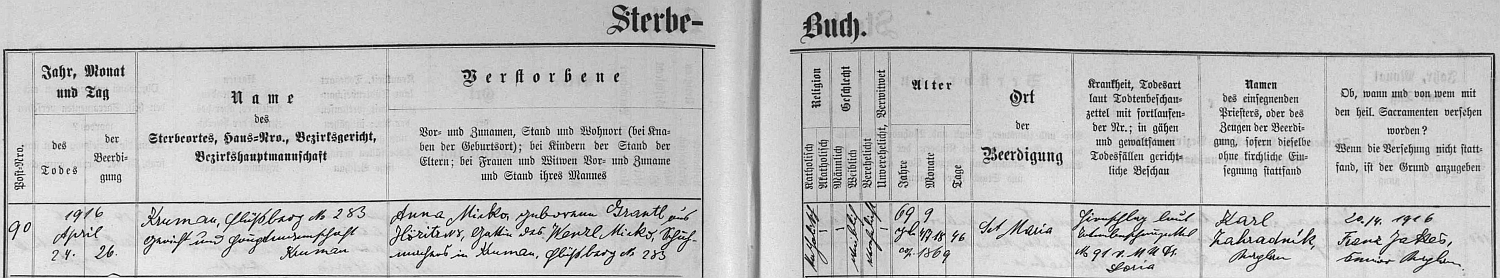 Sterbe-
Buch.
Post-Nro.
Jahr, Monat
und Tag
des
Todes
der
Beerdi-
gung
Name
des
Sterbeortes, Haus-Nro., Bezirksgericht,
Bezirkshauptmannschaft
Verstorbene
Vor- und Zunamen, Stand und Wohnort (bei Kna-
ben der Geburtsort); bei Kindern der Stand der
Eltern; bei Frauen und Witwen Vor- und Zuname
und Stand ihres Mannes
Religion
Katholisch
Akatholisch
Geschlecht
Männlich
Weiblich
Verehelicht
Unverehelicht, Verwitwet
Alter
Jahre
Monate
Tage
Ort
der
Beerdigung
Krankheit, Todesart
laut Todtenbeschau-
zettel mit fortlaufen-
der Nr.; in gähen
und gewaltsamen
Todesfällen gericht-
liche Beschau
Namen
des einsegnenden
Priesters, oder des
Zeugen der Beerdi-
gung, sofern dieselbe
ohne kirchliche Ein-
segnung stattfand
Ob, wann und von wem mit
den heil. Sacramenten versehen
worden?
Wenn die Versehung nicht statt-
fand, ist der Grund anzugeben
90
1916
April
24. 26.
Kruman, Flößberg N 283
Gericht und Hauptmannschaft
Kruman
Anna Micko, geborene Grantl aus
Höritz, Gattin des Wenzl Micko, Schuh-
machers in Kruman, Flößberg N 283
katholisch
weiblich
verehelicht
69 9
1869
Set Maria
laut
N 91 v.
Karl
Zahradník,
Kaplan
20./4. 1916
Franz
Kaplan